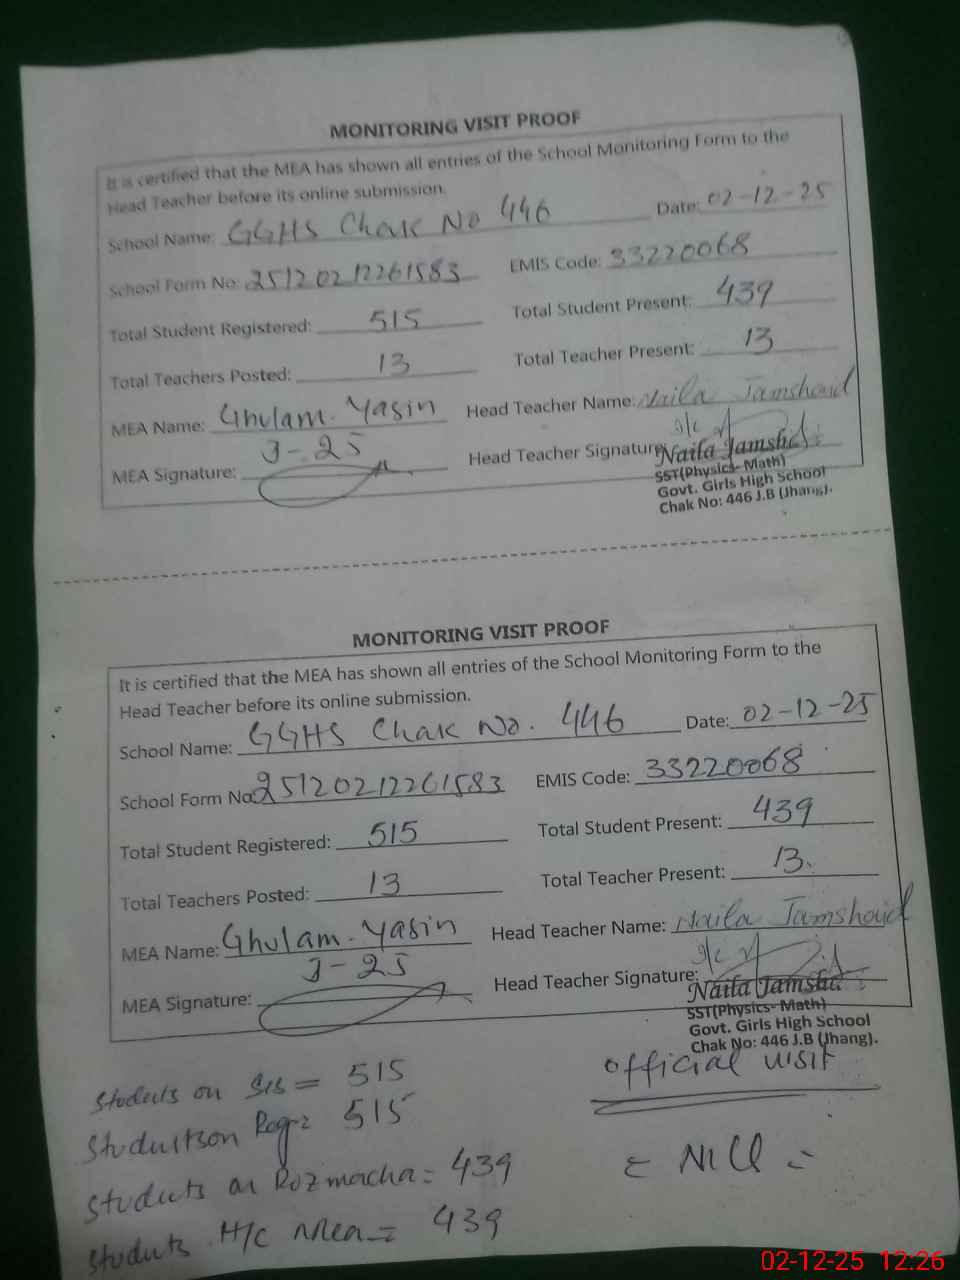 MONITORING VISIT PROOF
It is certified that the MEA has shown all entries of the School Monitoring Form to the
Head Teacher before its online submission.
School Name: GGHS Chak No 446 Date: 02-12-25
School Form No: 25120212261583 EMIS Code: 33220068
Total Student Registered: 515 Total Student Present: 439
Total Teachers Posted: 13 Total Teacher Present: 13
MEA Name: Ghulam. Yasin Head Teacher Name: Naila Jamshaid
J-25
MEA Signature: Head Teacher Signature:
Naila Jamshd
SST(Physics- Math)
Govt. Girls High School
Chak No: 446 J.B (Jhang).
MONITORING VISIT PROOF
It is certified that the MEA has shown all entries of the School Monitoring Form to the
Head Teacher before its online submission.
School Name: GGHS Chak No. 446 Date: 02-12-25
School Form No: 25120212261583 EMIS Code: 33220068
Total Student Registered: 515 Total Student Present: 439
Total Teachers Posted: 13 Total Teacher Present: 13.
MEA Name: Ghulam. Yasin Head Teacher Name: Naila Jamshaid
J-25
MEA Signature: Head Teacher Signature:
Naila Jamshd
SST(Physics- Math)
Govt. Girls High School
Chak No: 446 J.B (Jhang).
official visit
= Nill =
Students on SIS = 515
Students on Reg= 515
Students on Rozmacha= 439
Students H/C Mea= 439
02-12-25 12:26